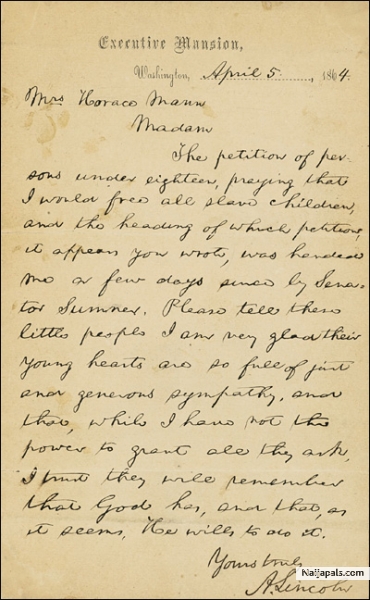 Executive Mansion,
Washington, April 5, 1864.
Mrs Horace Mann
Madam
The petition of per-
sons under eighteen, praying that
I would free all slave children,
and the heading of which petition
it appears you wrote, was handed
me a few days since by Sena-
tor Sumner. Please tell these
little people I am very glad their
young hearts are so full of just
and generous sympathy, and
that, while I have not the
power to grant all they ask,
I trust they will remember
that God has, and that, as
it seems, He wills to do it.
Yours truly
A. Lincoln
Naijapals.com